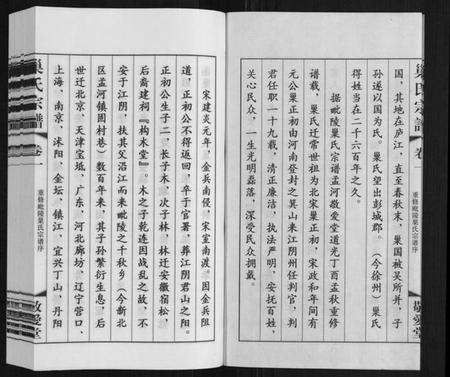 巢氏宗谱
卷一
重修毗陵巢氏宗谱序
敬爱堂
国，其地在庐江，直至春秋末，巢国被吴所并，子
孙遂以国为氏。巢氏望出彭城郡。（今徐州）巢氏
得姓当在二千六百年之久。
据毗陵巢氏宗谱孟河敬爱堂道光丁酉孟秋重修
谱载，巢氏迁常世祖为北宋巢正初，宋政和年间有
元公巢正初由河南登封之箕山来江阴州任判官，判
君任职一十九载，清正廉洁，执法严明，安抚百姓，
关心民众，一生光明磊落，深受民众拥戴。
宋建炎元年，金兵南侵，宋室南渡。因金兵阻
道，正初公不得返回，卒于官署，葬江阴君山之阳。
正初公生子二，长子木，次子林。林迁安徽宿松，
后裔建祠『构木堂』。木之子乾连因战乱之故，不
安于江阴，扶其父沿江而来毗陵之千秋乡（今新北
区孟河镇固村巷）数百年来，其子孙繁衍生息，后
世迁北京，天津宝坻，广东，河北廊坊，辽宁营口，
上海，南京，沭阳，金坛，镇江，宜兴丁山，丹阳
巢氏宗谱
卷一
重修毗陵巢氏宗谱序
敬爱堂